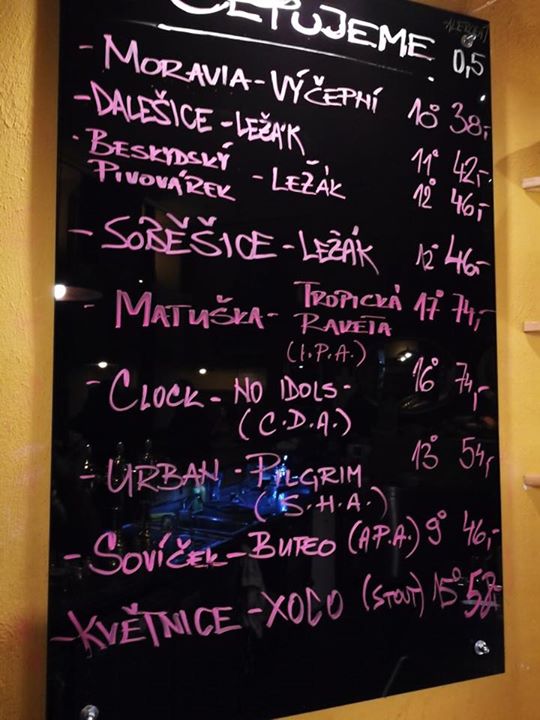 ČEPUJEME
ALERGENY 0,5
- MORAVIA - VÝČEPNÍ 10° 38,-
- DALEŠICE - LEŽÁK 11° 42,-
- BESKYDSKÝ
PIVOVÁREK - LEŽÁK 12° 46,-
- SOBĚŠICE - LEŽÁK 12° 46,-
- MATUŠKA - TROPICKÁ 17° 74,-
RAKETA
(I.P.A.)
- CLOCK - NO IDOLS - 16° 74,-
(C.D.A.)
- URBAN - PILGRIM 13° 54,-
(S.H.A.)
- SOVÍČEK - BUTEO (APA.) 9° 46,-
- KVĚTNICE - XOCO (STOUT) 15° 58,-